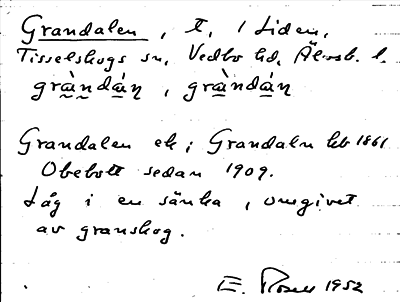 Grandalen, t, 1 Liden,
Tisselskogs sn, Vedbo hd, Älvsb. l.
gràndán, gràndán
Grandalen ek; Grandaln hb 1861
Obebott sedan 1909.
Låg i en sänka, omgivet
av granskog.
E. Rosell 1952